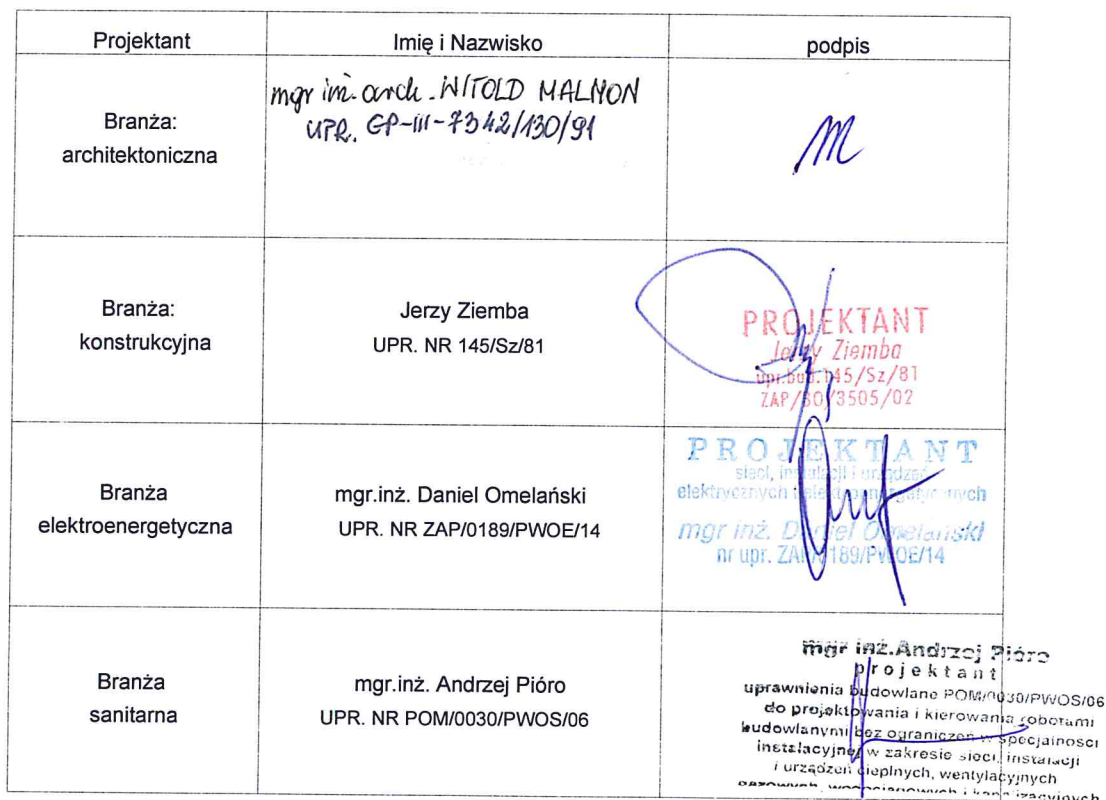 Projektant Imię i Nazwisko podpis
mgr inż. arch. WITOLD MALMON
UPR. GP-III-7342/130/91
Branża:
architektoniczna
Branża:
konstrukcyjna
Jerzy Ziemba
UPR. NR 145/Sz/81
PROJEKTANT
Jerzy Ziemba
upr.bud.145/Sz/81
ZAP/BO/3505/02
Branża
elektroenergetyczna
mgr.inż. Daniel Omelański
UPR. NR ZAP/0189/PWOE/14
PROJEKTANT
sieci, instalacji i urządzeń
elektrycznych i elektroenergetycznych
mgr inż. Daniel Omelański
nr upr. ZAP/0189/PWOE/14
Branża
sanitarna
mgr.inż. Andrzej Pióro
UPR. NR POM/0030/PWOS/06
mgr inż.Andrzej Pióro
projektant
uprawnienia budowlane POM/0030/PWOS/06
do projektowania i kierowania robotami
budowlanymi bez ograniczeń w specjalności
instalacyjnej w zakresie sieci, instalacji
i urządzeń cieplnych, wentylacyjnych
gazowych, wodociągowych i kanalizacyjnych